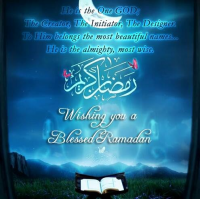 He is the One GOD;
The Creator, The Initiator, The Designer.
To Him belongs the most beautiful names...
He is the almighty, most wise.
رمضان كريم
Wishing you a
Blessed Ramadan